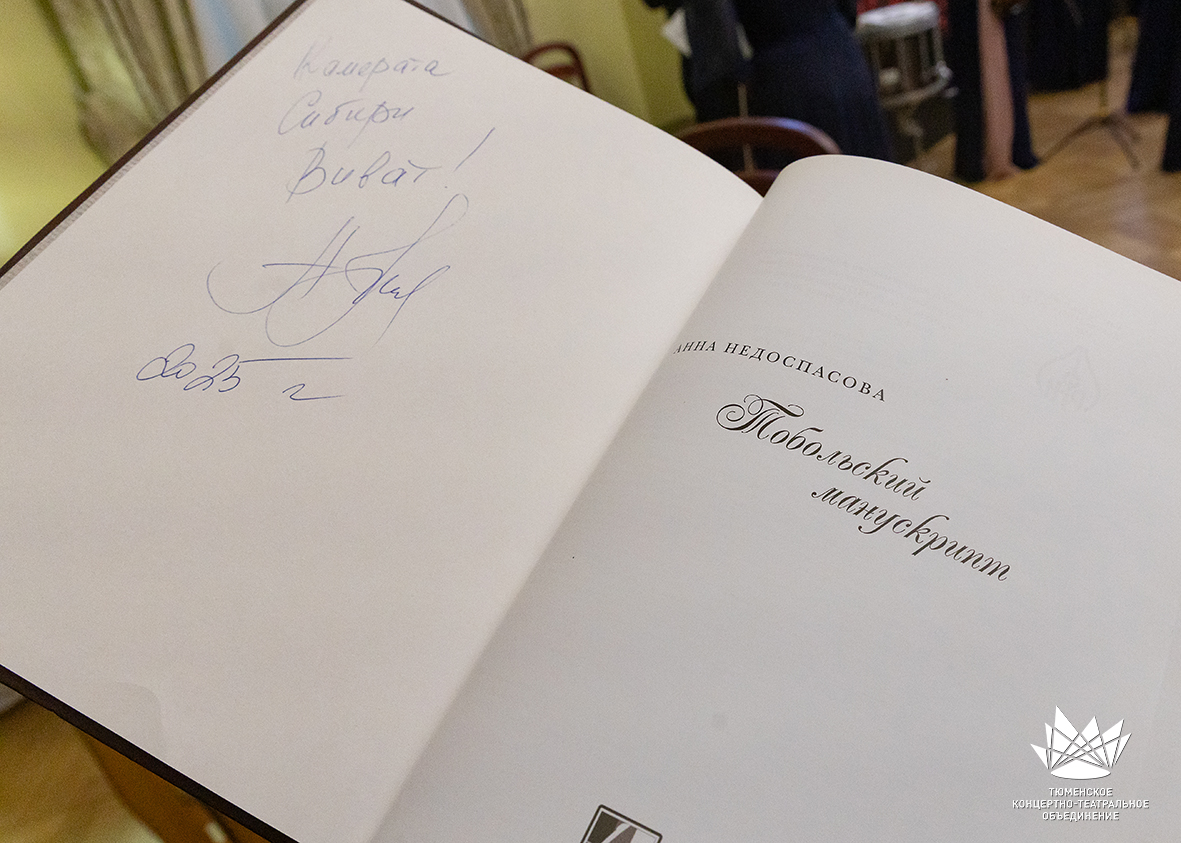 Камерата
Сибири
Виват!
2025 г
АННА НЕДОСПАСОВА
Тобольский
манускрипт
ТЮМЕНСКОЕ
КОНЦЕРТНО-ТЕАТРАЛЬНОЕ
ОБЪЕДИНЕНИЕ